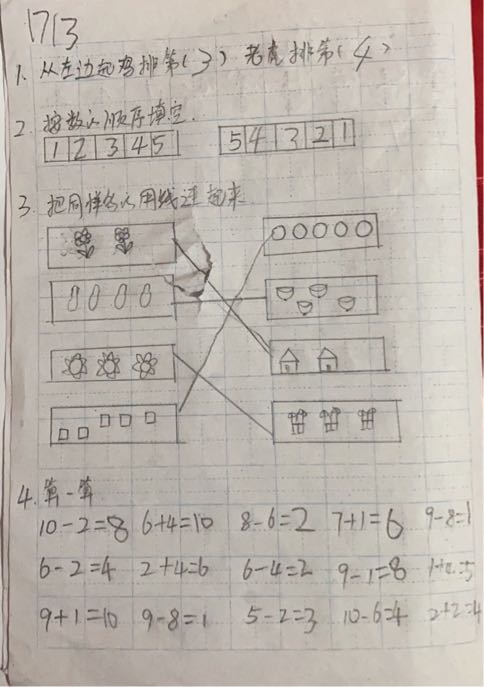 1713
1. 从左边起鸡排第(3) 老虎排第(4)
2. 按数的顺序填空.
1 2 3 4 5 5 4 3 2 1
3. 把同样多的用线连起来
4. 算一算
10-2=8 6+4=10 8-6=2 7+1=6 9-8=1
6-2=4 2+4=6 6-4=2 9-1=8 1+4=5
9+1=10 9-8=1 5-2=3 10-6=4 2+2=4